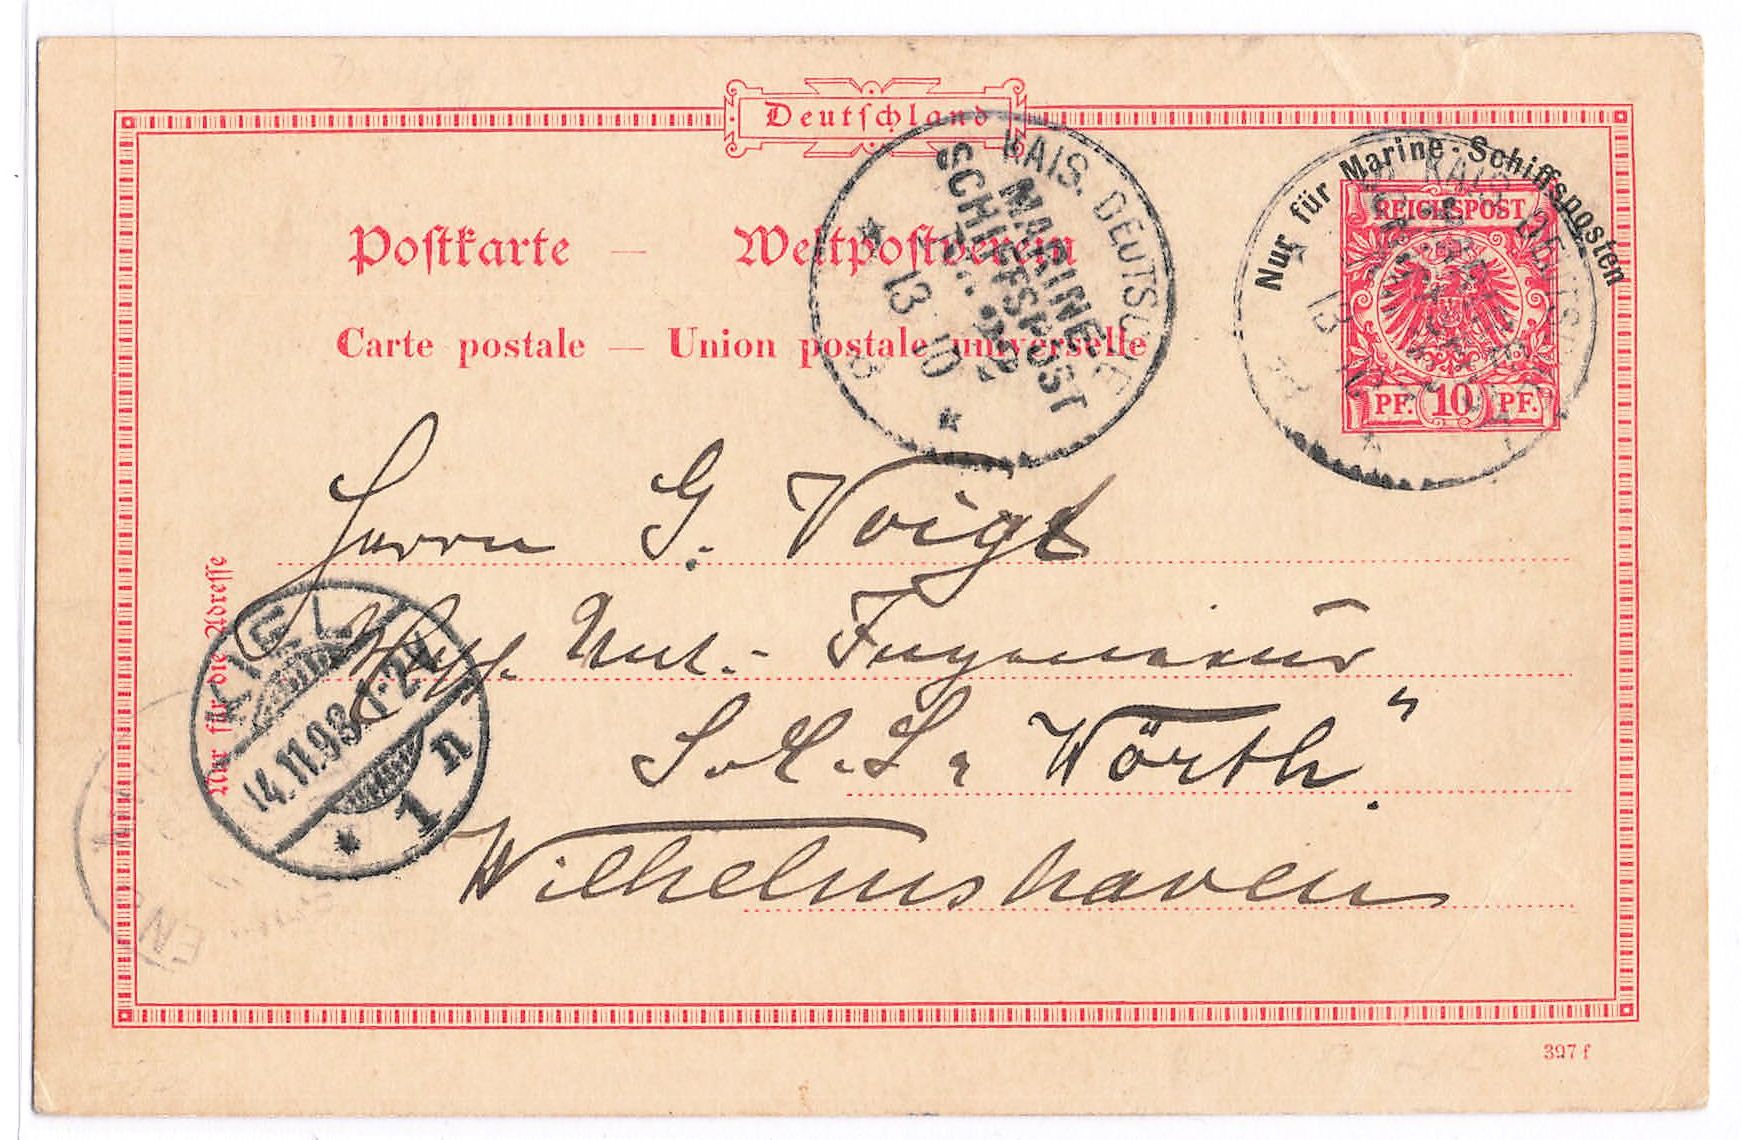 Deutschland
Nur für Marine-Schiffsposten
REICHSPOST
PF. 10 PF.
KAIS. DEUTSCHE
MARINE-
SCHIFFSPOST
No. 22
13 10
KAIS. DEUTSCHE
13
Postkarte — Weltpostverein
Carte postale — Union postale universelle
Herrn G. Voigt
Ingenieur
S. M. S. Wörth"
Wilhelmshaven
Nur für die Adresse
KIEL
14.11.98.1-2N
* 1 n
397 f